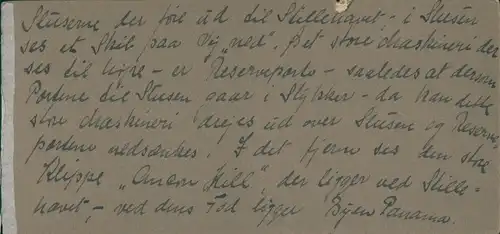 Sluserne der före ud til Stillehavet - i Slusen
ses et Skib paa Vej "ned". Det store Maskineri der
ses til højre - er Reserveporte - saaledes at dersom
Portene til Slusen gaar i Stykker - da kan dette
store Maskineri drejes ud over Slusen og Reserve
portene nedsænkes. I det fjerne ses den store
Klippe "Ancon Hill", der ligger ved Stille-
havet, - ved dens Fod ligger Byen Panama.